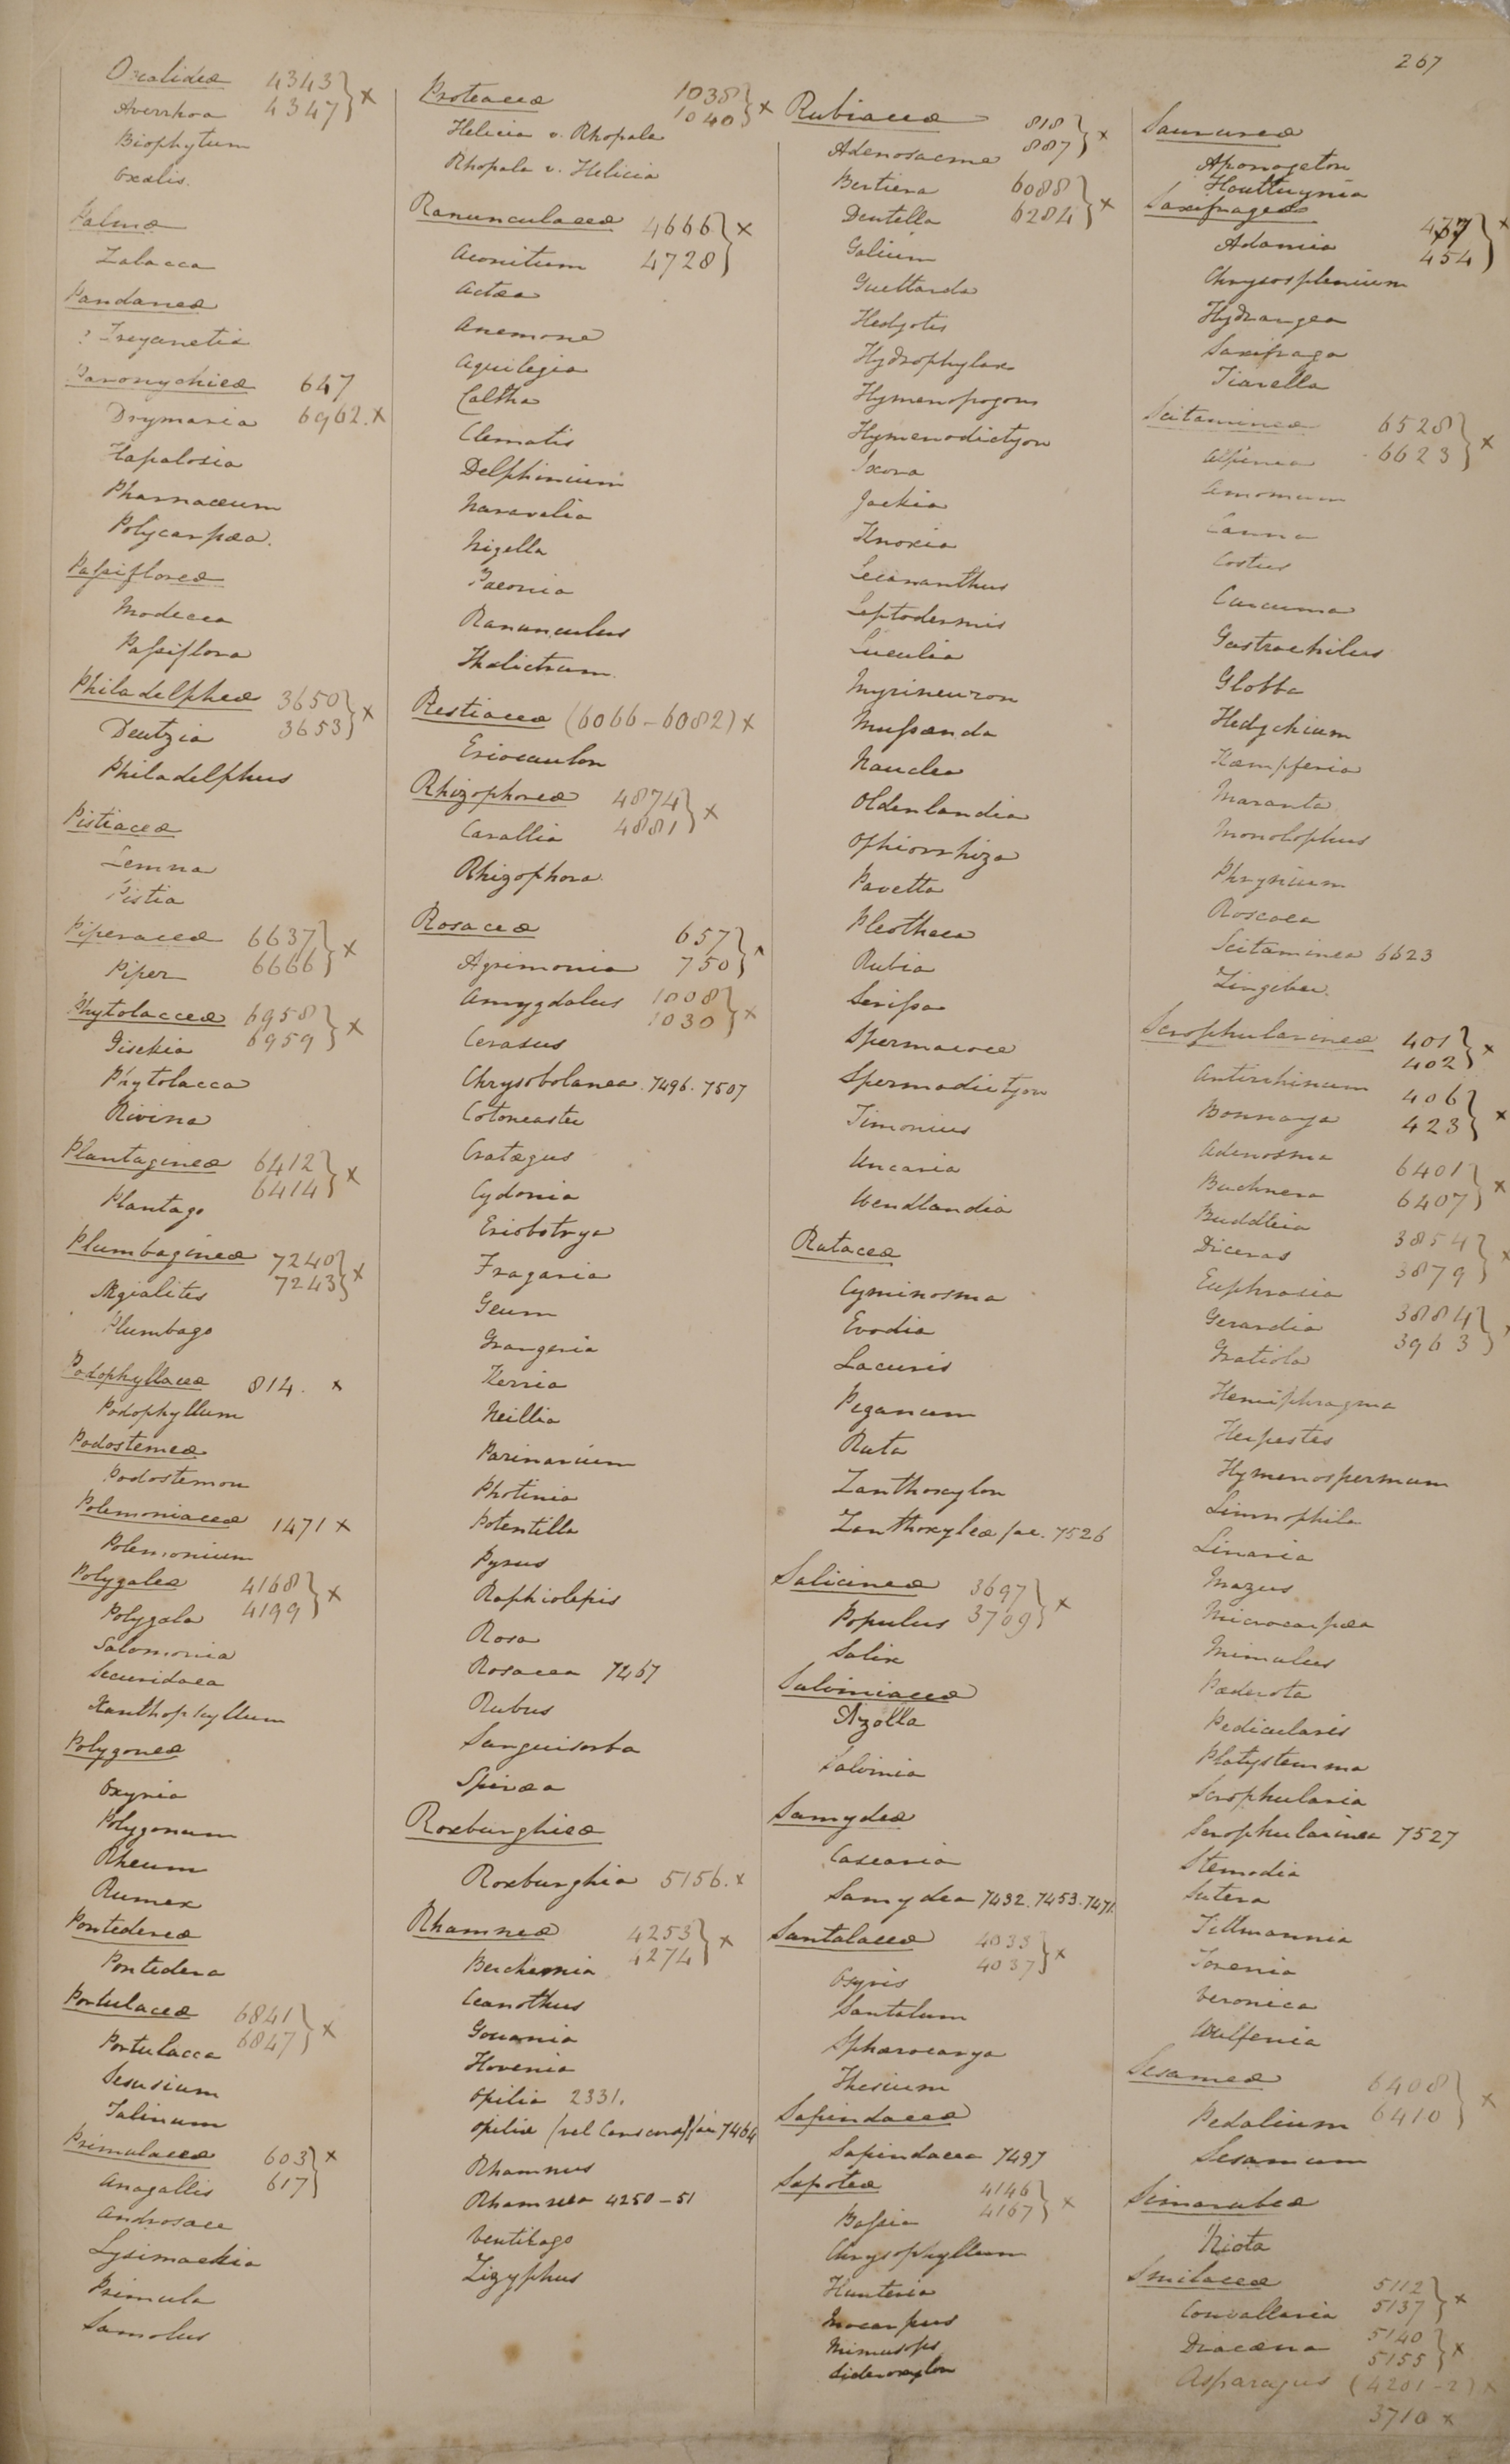 267
Oxalideæ 4343 } x
Averrhoa 4347
Biophytum
Oxalis.
Palmæ
Zalacca
Pandaneæ
? Freycinetia
Paronychieæ 647
Drymaria 6962. x
Hapalosia
Pharnaceum
Polycarpæa.
Passifloreæ
Modecca
Passiflora
Philadelpheæ 3650 } x
Deutzia 3653
Philadelphus
Pistiaceæ
Lemna
Pistia
Piperaceæ 6637 } x
Piper 6666
Phytolacceæ 6958 } x
Gisekia 6959
Phytolacca
Rivina
Plantagineæ 6412 } x
Plantago 6414
Plumbagineæ 7240 } x
Ægialites 7243
Plumbago
Podophyllaceæ 814. x
Podophyllum
Podostemeæ
Podostemon
Polemoniaceæ 1471 x
Polemonium
Polygaleæ 4168 } x
Polygala 4199
Salomonia
Securidaca
Xanthophyllum
Polygoneæ
Oxyria
Polygonum
Rheum
Rumex
Pontedereæ
Pontedera
Portulaceæ 6841 } x
Portulacca 6847
Sesuvium
Talinum
Primulaceæ 603 } x
Anagallis 617
Androsace
Lysimachia
Primula
Samolus
Proteaceæ 1038 } x
1040
Helicia v. Rhopala
Rhopala v. Helicia
Ranunculaceæ 4666 } x
Aconitum 4728
Actæa
Anemone
Aquilegia
Caltha
Clematis
Delphinium
Naravelia
Nigella
Paeonia
Ranunculus
Thalictrum
Restiaceæ (6066-6082) x
Eriocaulon
Rhizophoreæ 4874 } x
Carallia 4881
Rhizophora
Rosaceæ 657 } x
Agrimonia 750
Amygdalus 1008 } x
1030
Cerasus
Chrysobolanea. 7496. 7507
Cotoneaster
Cratægus
Cydonia
Eriobotrya
Fragaria
Geum
Grangeria
Kerria
Neillia
Parinarium
Photinia
Potentilla
Pyrus
Raphiolepis
Rosa
Rosacea 7467
Rubus
Sanguisorba
Spiræa
Roxburghieæ
Roxburghia 5156. x
Rhamneæ 4253 } x
Berchemia 4274
Ceanothus
Gouania
Hovenia
Opilia 2331.
Opiliæ (vel Cansceræ) sic 7464
Rhamnus
Rhamnea 4250-51
Ventilago
Zizyphus
Rubiaceæ 818 } x
Adenosacme 887
Bertiera 6088 } x
Dentella 6284
Galium
Guettarda
Hedyotis
Hydrophylax
Hymenopogon
Hymenodictyon
Ixora
Jackia
Knoxia
Lecananthus
Leptodermis
Luculia
Myrineuron
Mussænda
Nauclea
Oldenlandia
Ophiorrhiza
Pavetta
Pleotheca
Rubia
Serissa
Spermacoce
Spermadictyon
Timonius
Uncaria
Wendlandia
Rutaceæ
Cyminosma
Evodia
Lacuris
Peganum
Ruta
Zanthoxylon
Zanthoxyleæ sic. 7526
Salicineæ 3697 } x
Populus 3709
Salix
Salviniaceæ
Azolla
Salvinia
Samydeæ
Casearia
Samydea 7432. 7453. 7471.
Santalaceæ 4033 } x
4037
Osyris
Santalum
Sphærocarya
Thesium
Sapindaceæ
Sapindacea 7497
Sapoteæ 4146 } x
Bassia 4167
Chrysophyllum
Hunteria
Inocarpus
Mimusops
Sideroxylon
Saurureæ
Aponogeton
Houttuynia
Saxifrageæ 437 } x
Adamia 454
Chrysosplenium
Hydrangea
Saxifraga
Tiarella
Scitamineæ 6528 } x
Alpinea 6623
Amomum
Canna
Costus
Curcuma
Gastrochilus
Globba
Hedychium
Kæmpferia
Maranta
Monolophus
Phrynium
Roscoea
Scitaminea 6623
Zingiber.
Scrophularineæ 401 } x
402
Antirrhinum 406 } x
Bonnaya 423
Adenosma
Buchnera 6401 } x
6407
Buddleia
Diceras 3854 } x
3879
Euphrasia
Gerardia 3884 } x
Gratiola 3963
Hemiphragma
Herpestes
Hymenospermum
Limnophila
Linaria
Mazus
Microcarpæa
Mimulus
Pæderota
Pedicularis
Platystemma
Scrophularia
Scrophularinea 7527
Stemodia
Sutera
Tittmannia
Torenia
Veronica
Wulfenia
Sesameæ 6408 } x
Pedalium 6410
Sesamum
Simarubeæ
Niota
Smilaceæ 5112 } x
Convallaria 5137
Dracæna 5140 } x
5155
Asparagus (4201-2) x
3710 x